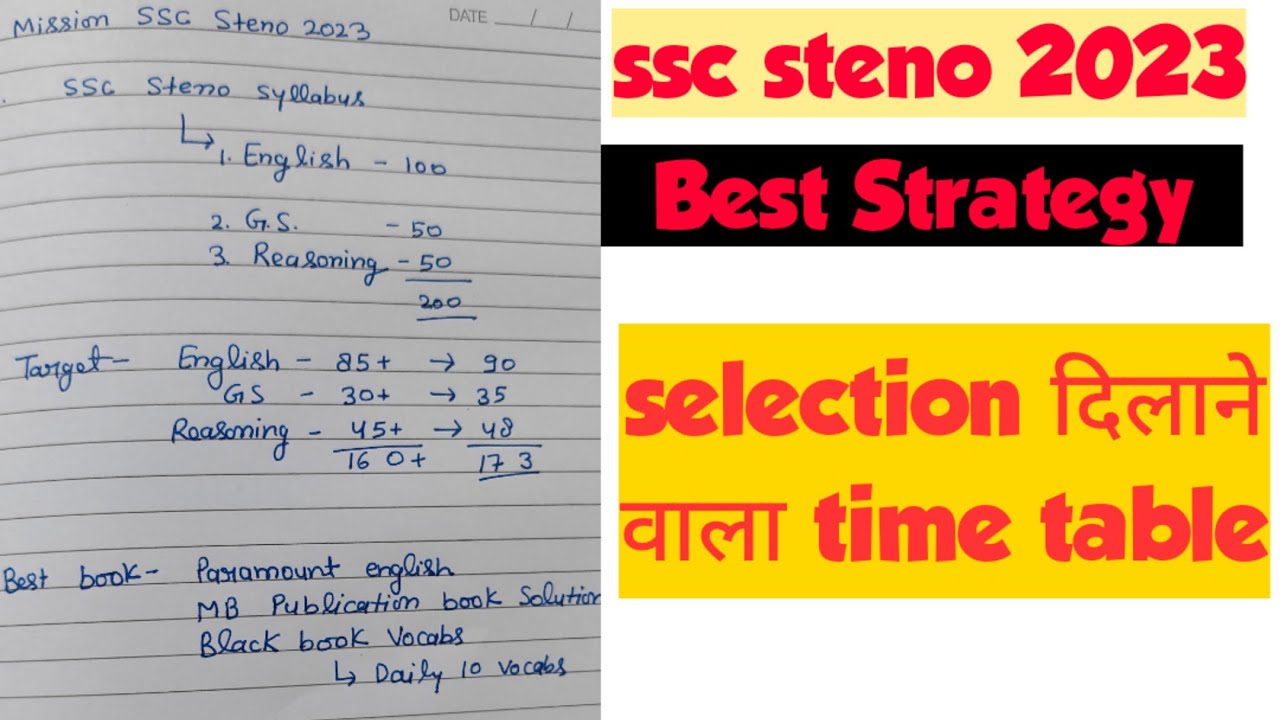 Mission SSC Steno 2023
DATE __/__/__
SSC Steno Syllabus
1. English - 100
2. G.S. - 50
3. Reasoning - 50
200
Target - English - 85+ → 90
GS - 30+ → 35
Reasoning - 45+ → 48
160+ 173
Best book - Paramount english
MB Publication book Solution
Black book Vocabs
↳ Daily 10 Vocabs
ssc steno 2023
Best Strategy
selection दिलाने
वाला time table